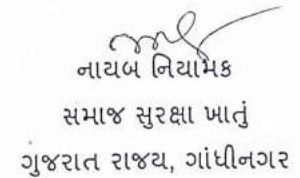 નાયબ નિયામક
સમાજ સુરક્ષા ખાતું
ગુજરાત રાજય, ગાંધીનગર